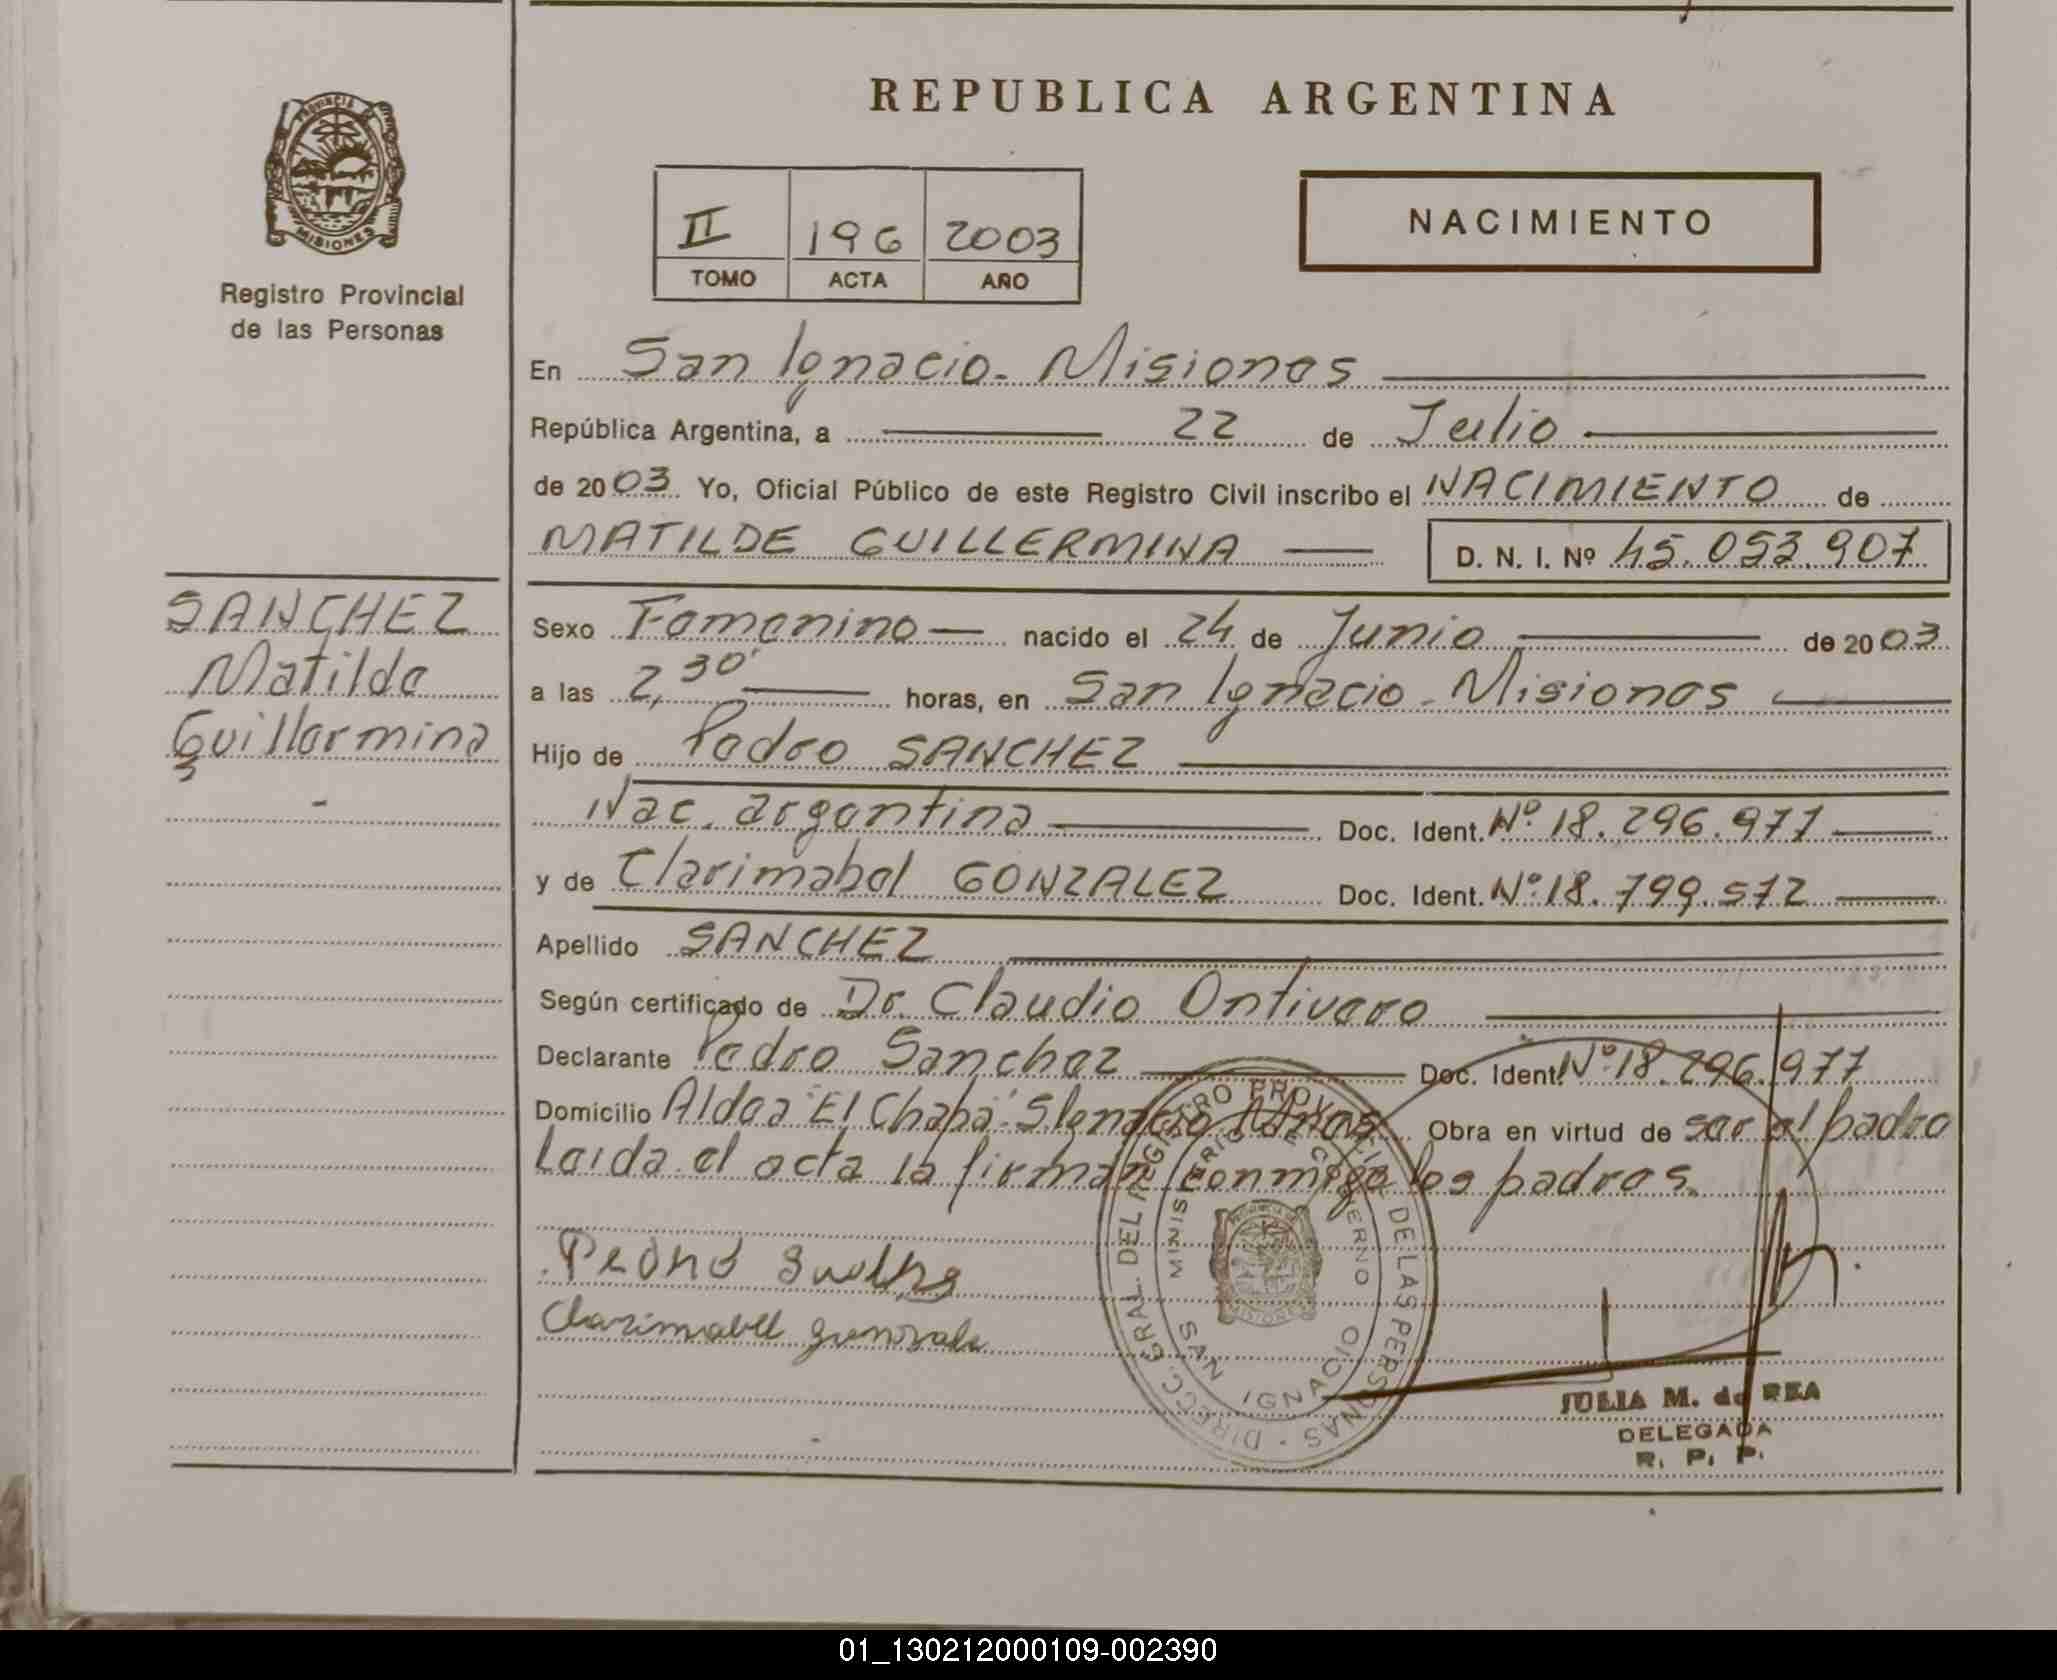 REPUBLICA ARGENTINA
PROVINCIA DE
MISIONES
Registro Provincial
de las Personas
II 196 2003
TOMO ACTA AÑO
NACIMIENTO
En San Ignacio - Misiones
República Argentina, a 22 de Julio
de 2003 Yo, Oficial Público de este Registro Civil inscribo el NACIMIENTO de
MATILDE GUILLERMINA D. N. I. Nº 45.053.907
SANCHEZ
Matilde
Guillermina
Sexo Femenino nacido el 24 de Junio de 2003
a las 2,30' horas, en San Ignacio - Misiones
Hijo de Pedro SANCHEZ
Nac. argentina Doc. Ident. Nº 18.296.977
y de Clarimabel GONZALEZ Doc. Ident. Nº 18.799.572
Apellido SANCHEZ
Según certificado de Dr. Claudio Ontivero
Declarante Pedro Sanchez Doc. Ident. Nº 18.296.977
Domicilio Aldea "El Chapa" SIgnacio Mnes Obra en virtud de ser el padre
Leida el acta la firman conmigo los padres.
Pedro
Clarimabel
DIRECC. GRAL. DEL REGISTRO PROVINCIAL DE LAS PERSONAS
MINISTERIO DE GOBIERNO
SAN IGNACIO
JULIA M. de REA
DELEGADA
R. P. P.
01_130212000109-002390